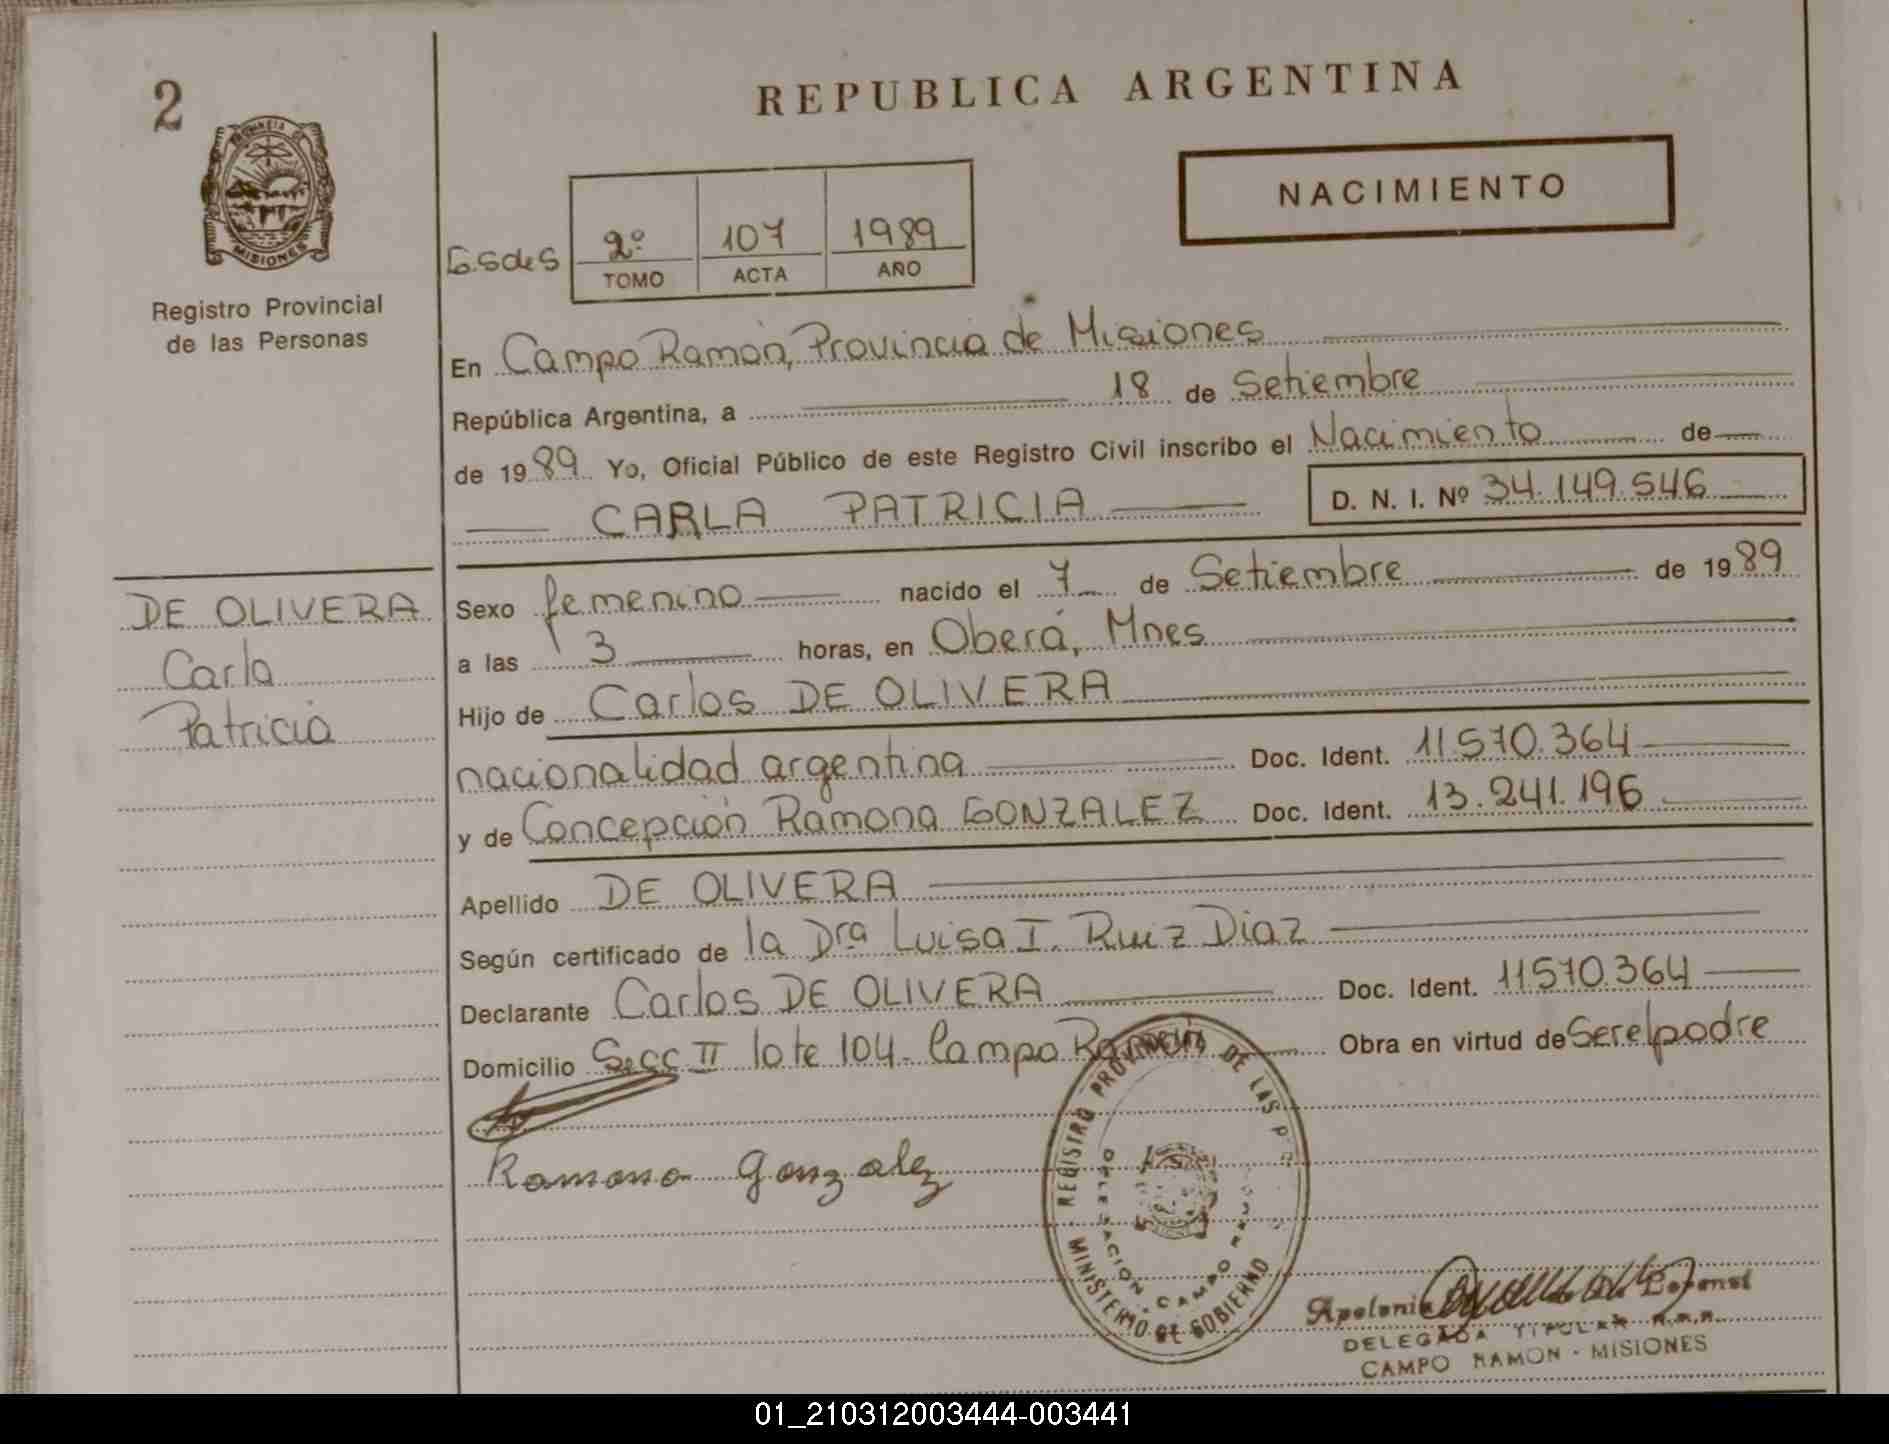 2
REPUBLICA ARGENTINA
PROVINCIA DE
MISIONES
Registro Provincial
de las Personas
NACIMIENTO
2º 107 1989
TOMO ACTA AÑO
En Campo Ramón, Provincia de Misiones
República Argentina, a 18 de Setiembre
de 1989 Yo, Oficial Público de este Registro Civil inscribo el Nacimiento de
CARLA PATRICIA D. N. I. Nº 34.149.546
DE OLIVERA
Carla
Patricia
Sexo femenino nacido el 7 de Setiembre de 1989
a las 3 horas, en Oberá, Mnes
Hijo de Carlos DE OLIVERA
nacionalidad argentina Doc. Ident. 11.570.364
y de Concepción Ramona GONZALEZ Doc. Ident. 13.241.196
Apellido DE OLIVERA
Según certificado de la Dra Luisa I. Ruiz Diaz
Declarante Carlos DE OLIVERA Doc. Ident. 11570.364
Domicilio Secc II lote 104 - Campo Ramón Obra en virtud de Ser el padre
Ramona Gonzalez
REGISTRO PROVINCIAL DE LAS P
DELEGACION CAMPO
MINISTERIO DE GOBIERNO
Apolonia
DELEGADA TITULAR
CAMPO RAMON - MISIONES
01_210312003444-003441